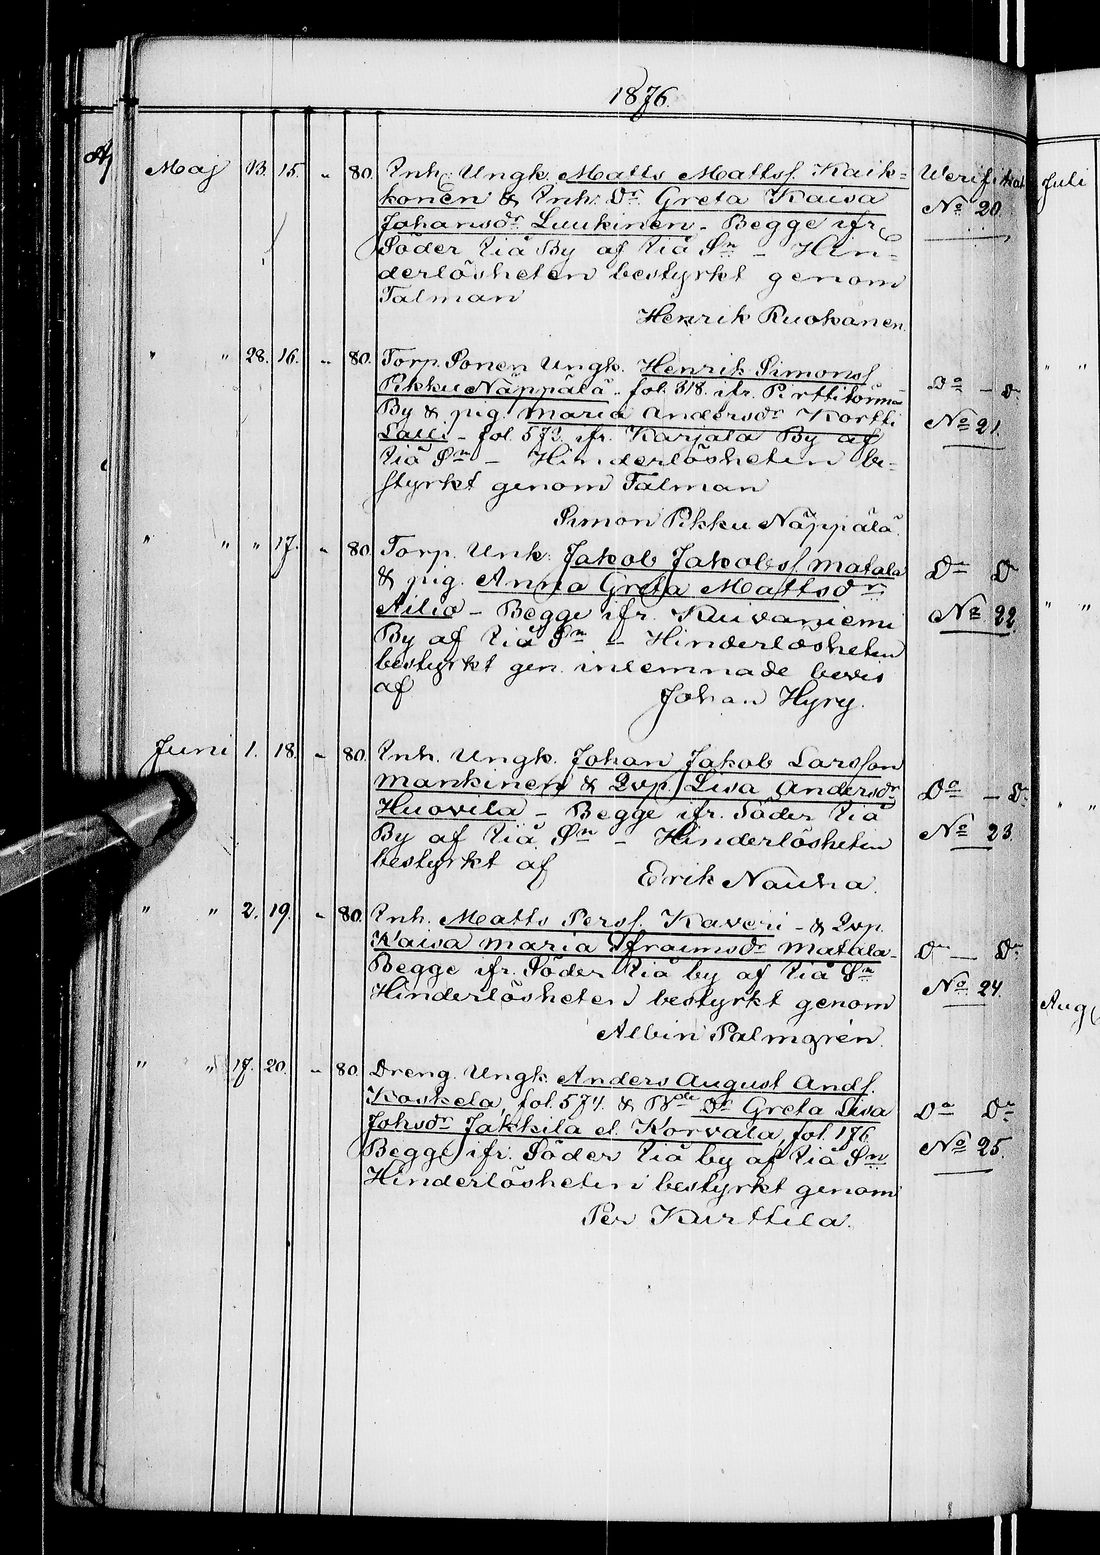 1876.
Maj 13. 15. „ 80. Inh. Ungk. Matts Mattss. Kaik- Verifikat
konen & Inh. Dr. Greta Kaisa No 20
Johansdr. Luukinen - Begge ifr.
Söder Iiå By af Iiå Sn - Hin-
derlösheten bestyrkt genom
Talman
Henrik Ruokanen.
„ „ 28. 16. „ 80. Torp. Sonen Ungk. Henrik Simonss.
Pikku Näppälä.. fol. 318. ifr. Pirttitörmä Do - D
By & pig. Maria Andersdr. Kortti No 21.
Lalli - fol. 572. ifr. Karjala By af
Iiå Sn - Hinderlösheten be-
styrkt genom Talman
Simon Pikku Näppälä.
„ „ „ 17. „ 80. Torp. Unk. Jakob Jakobss. Matala Do Do
& pig. Anna Greta Mattsdr.
Ailio - Begge ifr. Kuivaniemi No 22.
By af Iiå Sn - Hinderlösheten
bestyrkt gen. inlemnade bevis
af
Johan Hyry.
Juni 1. 18. „ 80. Inh. Ungk. Johan Jakob Larsson
Mankinen & Qvp. Lisa Andersdr. Do - Do
Huovila - Begge ifr. Söder Iiå
By af Iiå Sn - Hinderlösheten No 23.
bestyrkt af
Erik Nauha.
„ „ 2. 19. „ 80. Inh. Matts Perss. Kaveri - & Qvp.
Kaisa Maria Efraimsdr. Matala - Do - Do
Begge ifr. Söder Iiå by af Iiå Sn
Hinderlösheten bestyrkt genom No 24.
Albin Palmgrén.
„ „ 17. 20. „ 80. Dreng. Ungk. Anders August Ands.
Koskela, fol. 574. & Bde Dr Greta Lisa Do Do
Johsdr. Jakkila el. Korvala, fol. 176
Begge ifr. Söder Iiå by af Iiå Sn No 25.
Hinderlösheten bestyrkt genom
Per Kurttila.
Juli
„ „
„ „
„ „
Aug